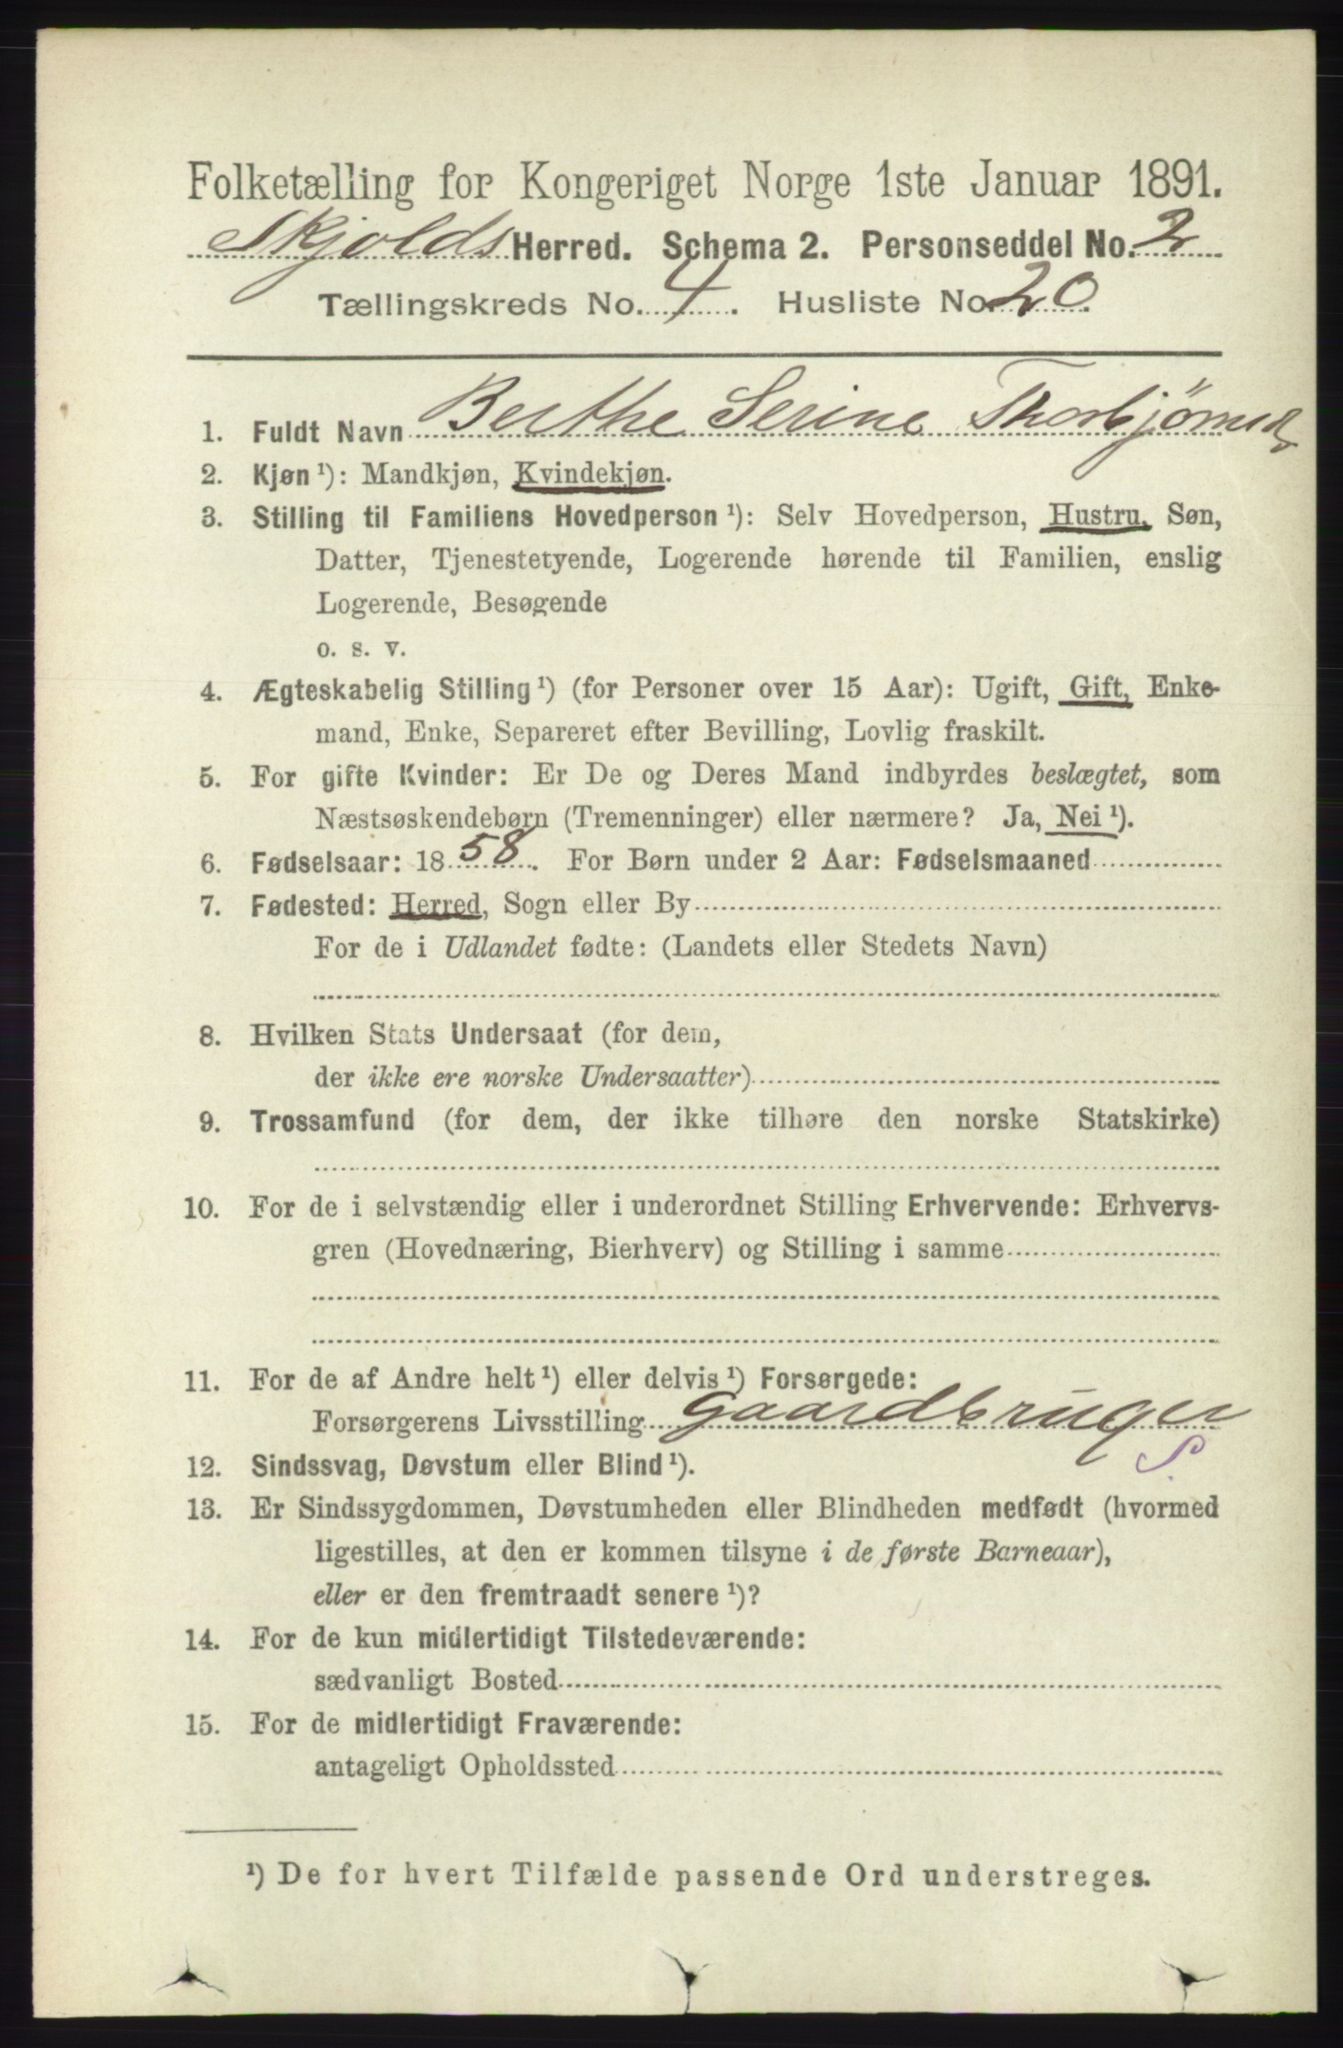 Folketælling for Kongeriget Norge 1ste Januar 1891.
Skjolds Herred. Schema 2. Personseddel No. 2
Tællingskreds No. 4. Husliste No. 20.
1. Fuldt Navn Berthe Serine
2. Kjøn ¹): Mandkjøn, Kvindekjøn.
3. Stilling til Familiens Hovedperson ¹): Selv Hovedperson, Hustru, Søn,
Datter, Tjenestetyende, Logerende hørende til Familien, enslig
Logerende, Besøgende
o. s. v.
4. Ægteskabelig Stilling ¹) (for Personer over 15 Aar): Ugift, Gift, Enke-
mand, Enke, Separeret efter Bevilling, Lovlig fraskilt.
5. For gifte Kvinder: Er De og Deres Mand indbyrdes beslægtet, som
Næstsøskendebørn (Tremenninger) eller nærmere? Ja, Nei ¹).
6. Fødselsaar: 1858. For Børn under 2 Aar: Fødselsmaaned
7. Fødested: Herred, Sogn eller By
For de i Udlandet fødte: (Landets eller Stedets Navn)
8. Hvilken Stats Undersaat (for dem,
der ikke ere norske Undersaatter)
9. Trossamfund (for dem, der ikke tilhøre den norske Statskirke)
10. For de i selvstændig eller i underordnet Stilling Erhvervende: Erhvervs-
gren (Hovednæring, Bierhverv) og Stilling i samme
11. For de af Andre helt ¹) eller delvis ¹) Forsørgede:
Forsørgerens Livsstilling Gaardbruger
S.
12. Sindssvag, Døvstum eller Blind ¹).
13. Er Sindssygdommen, Døvstumheden eller Blindheden medfødt (hvormed
ligestilles, at den er kommen tilsyne i de første Barneaar),
eller er den fremtraadt senere ¹)?
14. For de kun midlertidigt Tilstedeværende:
sædvanligt Bosted
15. For de midlertidigt Fraværende:
antageligt Opholdssted
¹) De for hvert Tilfælde passende Ord understreges.